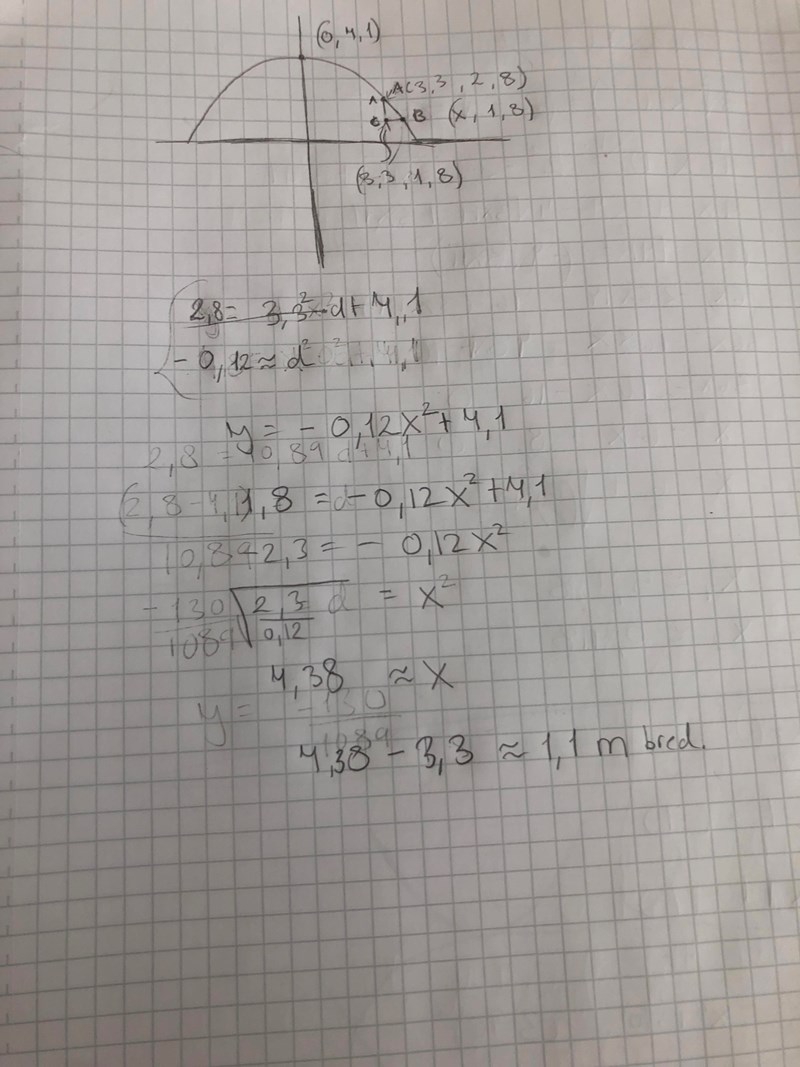 (0,4,1)
A(3,3, 2,8)
A
C B (x, 1,8)
(3,3, 1,8)
2,8 = 3,3² d + 4,1
- 0,12 ≈ d
y = - 0,12x² + 4,1
2,8 = 10,89 d + 4,1
1,8 = - 0,12x² + 4,1
2,3 = - 0,12x²
√2,3/0,12 = x²
4,38 ≈ x
y = -130/1089
4,38 - 3,3 ≈ 1,1 m bred.